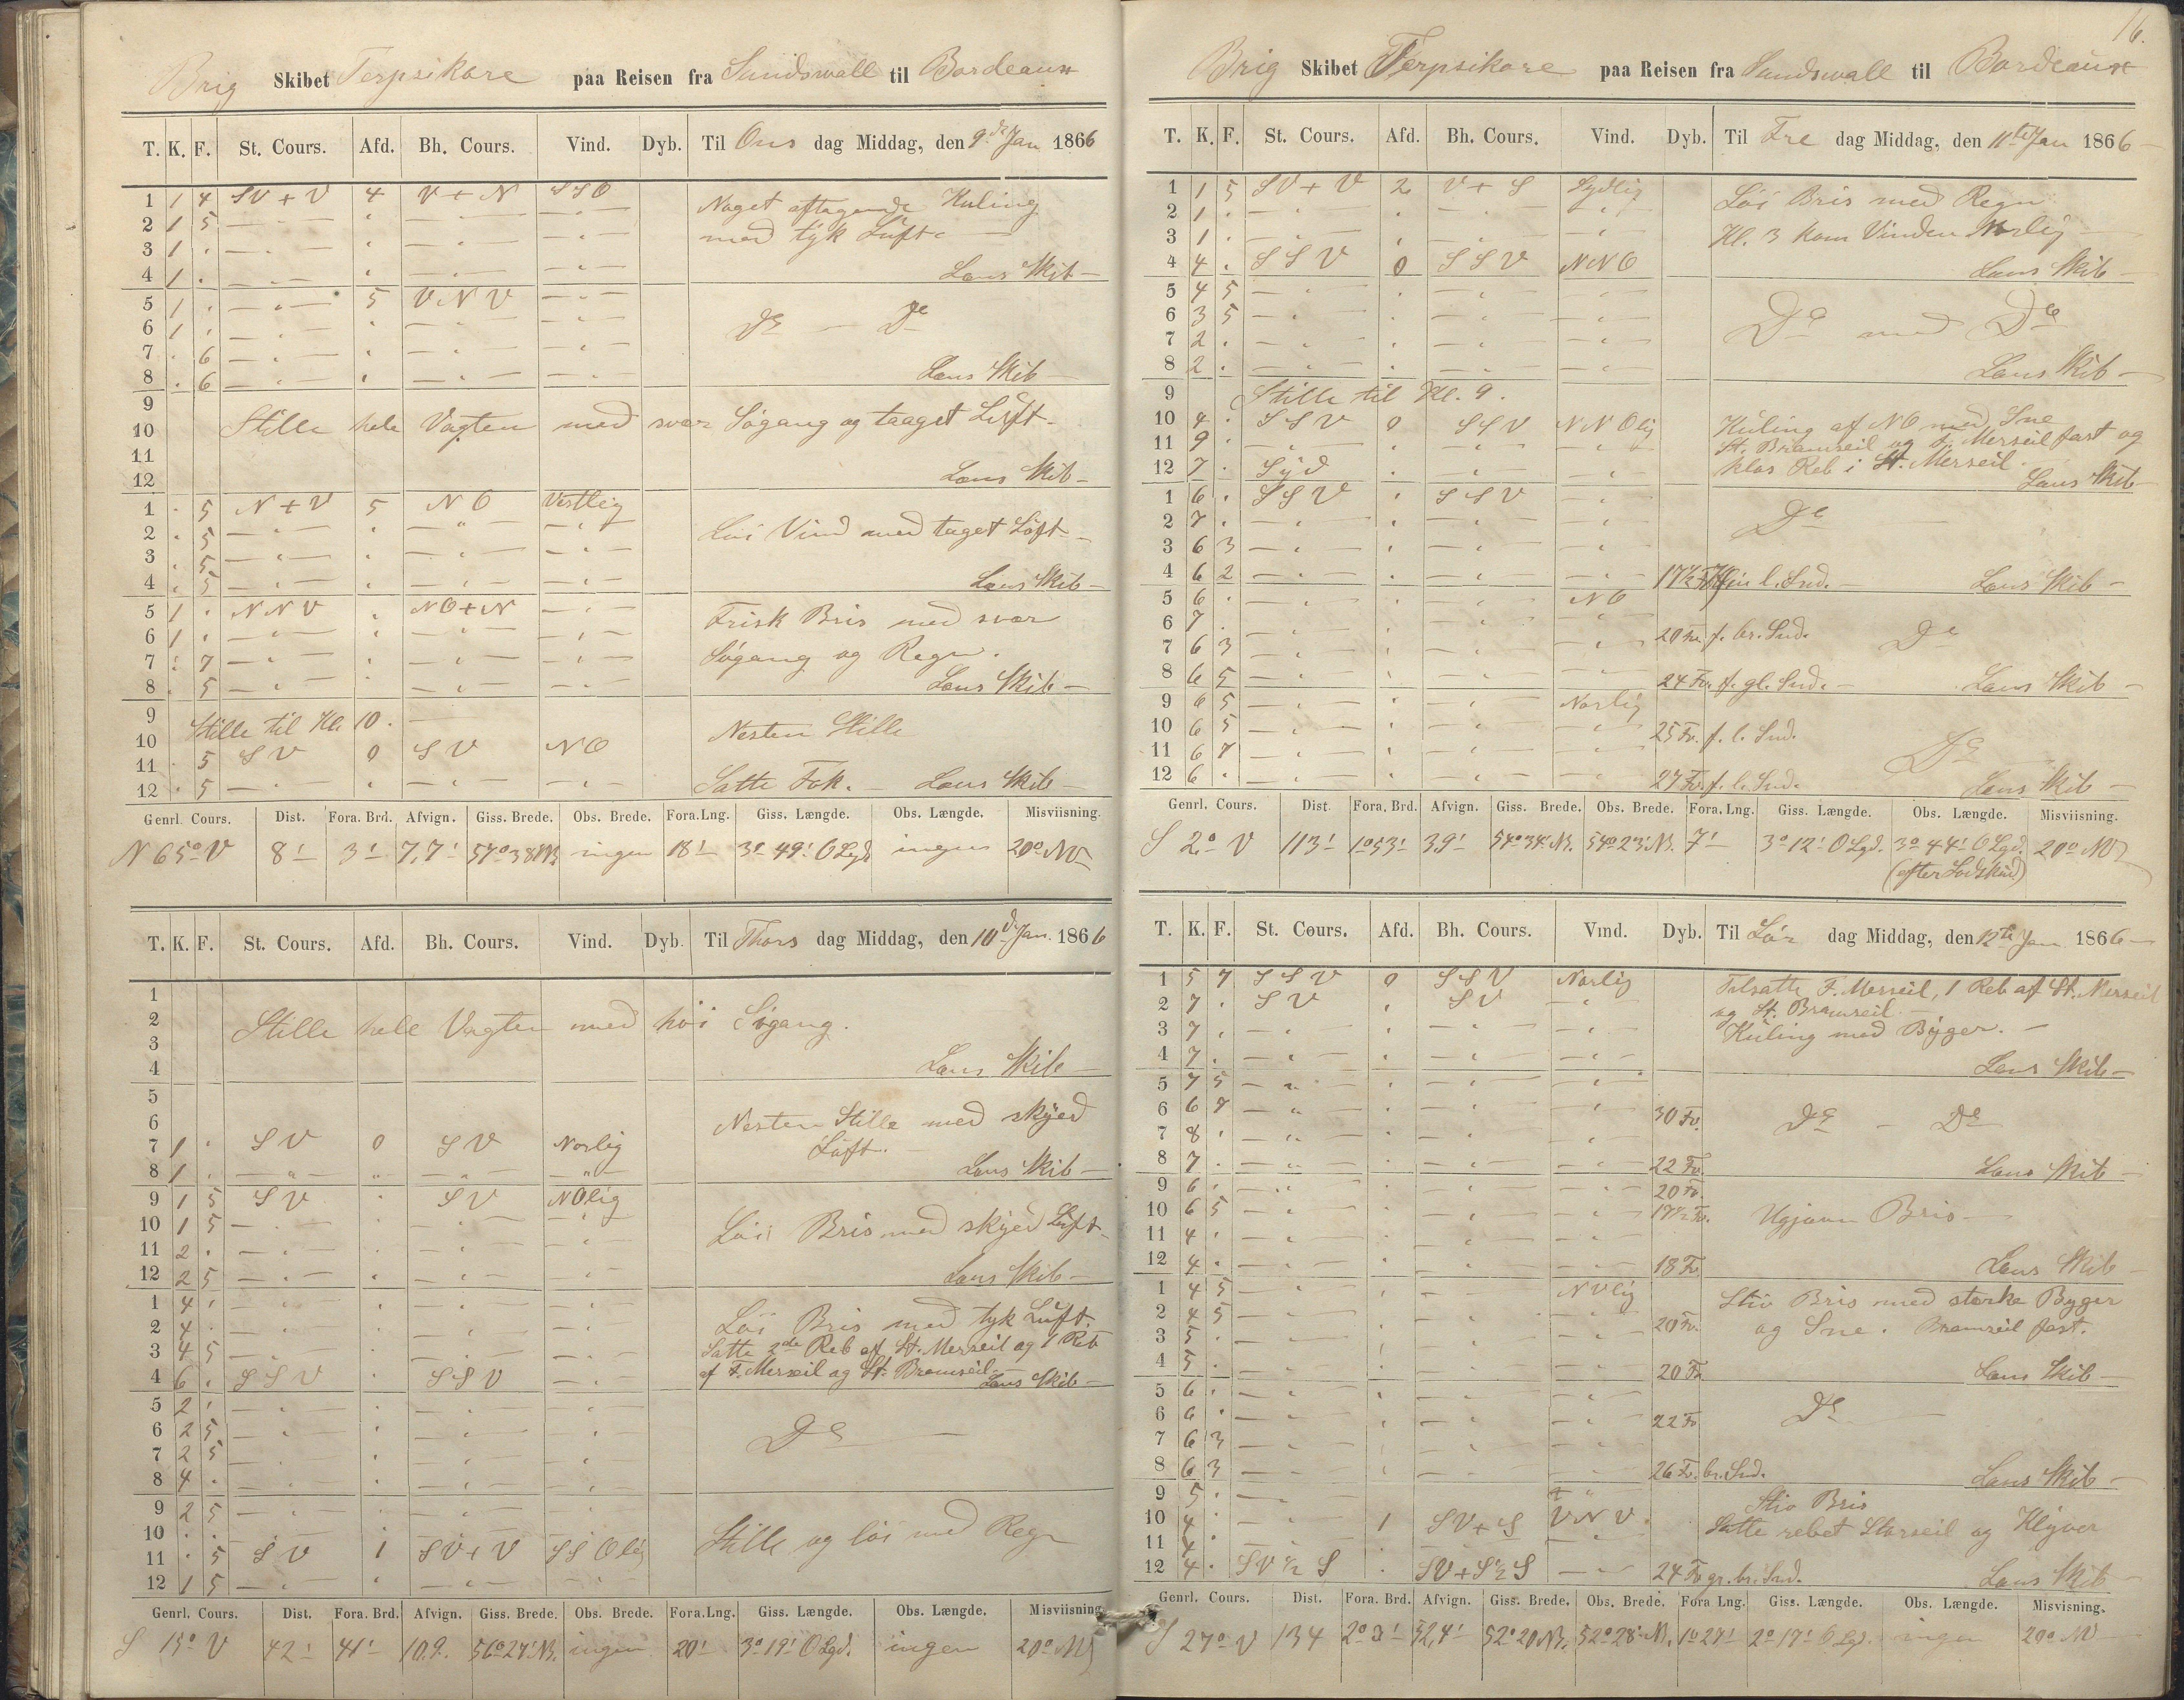 Brig Skibet Terpsikore paa Reisen fra Sundswall til Bordeaux
T. K. F. St. Cours. Afd. Bh. Cours. Vind. Dyb. Til Ons dag Middag, den 9de Jan 1866
1 1 4 SV + V 4 V + N SSO Noget aftagende Kuling
2 1 5 — " — " — " — — " — med tyk Luft
3 1 . — " — " — " — — " —
4 1 . — " — " — " — — " — Lens Skib —
5 1 . — " — 5 VNV — " —
6 1 . — " — " — " — — " — De — De
7 . 6 — " — " — " — — " —
8 . 6 — " — " — " — — " — Lens Skib —
9
10 Stille hele Vagten med svær Søgang og taaget Luft.
11
12 Lens Skib —
1 . 5 N + V 5 NO Vestlig
2 . 5 — " — " — " — — " — Løi Vind med taget Luft —
3 . 5 — " — " — " — — " —
4 . 5 — " — " — " — — " — Lens Skib —
5 1 . NNV " NO + N — " — Frisk Bris med svær
6 1 . — " — " — " — — " —
7 . 7 — " — " — " — — " — Søgang og Regn.
8 . 5 — " — " — " — — " — Lens Skib —
9 Stille til Kl. 10. — Nesten Stille
10
11 . 5 SV 0 SV NO
12 . 5 — " — " — " — — " — Satte Fok. — Lens Skib —
Genrl. Cours. Dist. Fora. Brd. Afvign. Giss. Brede. Obs. Brede. Fora. Lng. Giss. Længde. Obs. Længde. Misviisning.
N 65° V 8' 3' 7,7' 57°38'N. ingen 18' 3° 49' O Lgd. ingen 20° NV
T. K. F. St. Cours. Afd. Bh. Cours. Vind. Dyb. Til Thors dag Middag, den 10de Jan. 1866
1
2 Stille hele Vagten med høi Søgang.
3
4 Lens Skib —
5
6 Nesten Stille med skyed
7 1 . SV 0 SV Norlig Luft. —
8 1 . — " — " — " — — " — Lens Skib —
9 1 5 SV . SV NOlig
10 1 5 — " — " — " — — " — Løi Bris med skyed Luft
11 2 . — " — " — " — — " —
12 2 5 — " — " — " — — " — Lens Skib —
1 4 . — " — " — " — — " — Løi Bris med tyk Luft.
2 4 . — " — " — " — — " — Satte 2de Reb af St. Merseil og 1 Reb
3 4 5 — " — " — " — — " —
4 6 . SSV . SSV — " — af F. Merseil og St. Bramseil Lens Skib —
5 2 . — " — " — " — — " —
6 2 5 — " — " — " — — " — De —
7 2 5 — " — " — " — — " —
8 4 . — " — " — " — — " —
9 2 5 — " — " — " — — " —
10 . . Stille og løi med Regn
11 . 5 SV 1 SV + V SSOlig
12 1 5 — " — " — " — — " —
Genrl. Cours. Dist. Fora. Brd. Afvign. Giss. Brede. Obs. Brede. Fora. Lng. Giss. Længde. Obs. Længde. Misviisning.
S 15° V 42' 41' 10.9. 56°27'N. ingen 20' 3° 19' O Lgd. ingen 20° NV
16.
Brig Skibet Terpsikore paa Reisen fra Sundswall til Bordeaux
T. K. F. St. Cours. Afd. Bh. Cours. Vind. Dyb. Til Fre dag Middag, den 11te Jan 1866 —
1 1 5 SV + V 2 V + S Sydlig Løi Bris med Regn
2 1 . — " — " — " — — " —
3 1 . — " — " — " — — " — Kl. 3 kom Vinden Norlig —
4 4 . SSV 0 SSV NNO Lens Skib —
5 4 5 — " — " — " — — " —
6 3 5 — " — " — " — — " — De med De
7 2 . — " — " — " — — " —
8 2 . — " — " — " — — " — Lens Skib —
9 Stille til Kl. 9.
10 4 . SSV 0 SSV NNOlig Kuling af NO med Sne
11 9 . — " — " — " — — " — St. Bramseil og F. Merseil fast og
12 7 . Syd " — " — " klos Reb i St. Merseil. Lens Skib —
1 6 . SSV " SSV — " —
2 7 . — " — " — " — — " — De —
3 6 3 — " — " — " — — " —
4 6 2 — " — " — " — — " — 17½ Fv. fin l. Snd. — Lens Skib —
5 6 . — " — " — " — NO
6 7 . — " — " — " — — " — 20 Fv. f. br. Snd. De
7 6 3 — " — " — " — — " —
8 6 5 — " — " — " — — " — 24 Fv. f. gl. Snd. — Lens Skib —
9 6 5 — " — " — " — Norlig
10 6 5 — " — " — " — — " — 25 Fv. f. l. Snd.
11 6 7 — " — " — " — — " — De
12 6 . — " — " — " — — " — 27 Fv. f. l. Snd. Lens Skib —
Genrl. Cours. Dist. Fora. Brd. Afvign. Giss. Brede. Obs. Brede. Fora. Lng. Giss. Længde. Obs. Længde. Misviisning.
S 2° V 113' 1°53' 3.9' 54°34'N. 54°23'N. 7' 3° 12' O Lgd. 3° 44' O Lgd. 20° NV
(efter Lodskud)
T. K. F. St. Cours. Afd. Bh. Cours. Vind. Dyb. Til Lør dag Middag, den 12te Jan 1866 —
1 5 7 SSV 0 SSV Norlig Tilsatte F. Merseil, 1 Reb af St. Merseil
2 7 . SV " SV — " — og St. Bramseil. —
3 7 . — " — " — " — — " — Kuling med Byger. —
4 7 . — " — " — " — — " — Lens Skib —
5 7 5 — " — " — " — — " —
6 6 7 — " — " — " — — " — 30 Fv. De — De
7 8 . — " — " — " — — " —
8 7 . — " — " — " — — " — 22 Fv. Lens Skib —
9 6 . — " — " — " — — " — 20 Fv.
10 6 5 — " — " — " — — " — 17½ Fv. Ugjævn Bris —
11 4 . — " — " — " — — " —
12 4 . — " — " — " — — " — 18 Fv. Lens Skib —
1 4 5 — " — " — " — NVlig Stiv Bris med stærke Byger
2 4 5 — " — " — " — — " — 20 Fv. og Sne. Bramseil fast.
3 5 . — " — " — " — — " —
4 5 . — " — " — " — — " — 20 Fv. Lens Skib —
5 6 . — " — " — " — — " —
6 6 . — " — " — " — — " — 22 Fv. De —
7 6 3 — " — " — " — — " —
8 6 3 — " — " — " — — " — 26 Fv. br. Snd. Lens Skib —
9 5 . — " — Stiv Bris
10 4 . — " — 1 SV + S VNV Satte rebet Storseil og Klyver
11 4 . — " — " — " — — " —
12 4 . SV ½ S . SV + S ½ S — " — 24 Fv gr. br. Snd. Lens Skib —
Genrl. Cours. Dist. Fora. Brd. Afvign. Giss. Brede. Obs. Brede. Fora Lng. Giss. Længde. Obs. Længde. Misvisning.
S 27° V 134 2° 3' 52,4' 52° 20 N. 52° 28' N. 1° 27' 2° 17' O Lgd. ingen 20° NV